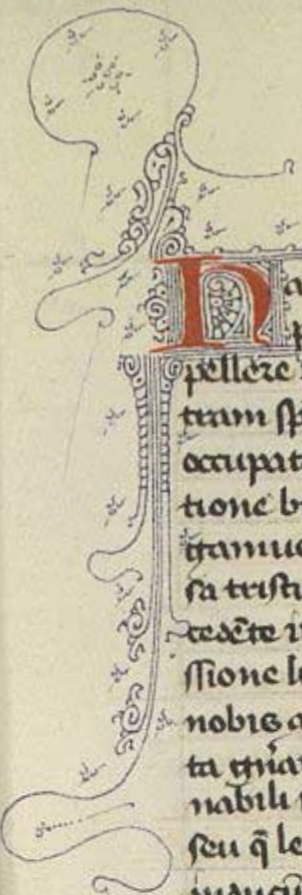 Na
p
pellere
tram sp
occupat
tione b
gramuc
sa tristi
cedēte i
ssione le
nobis a
ta gna
nabili
seu q̄ le